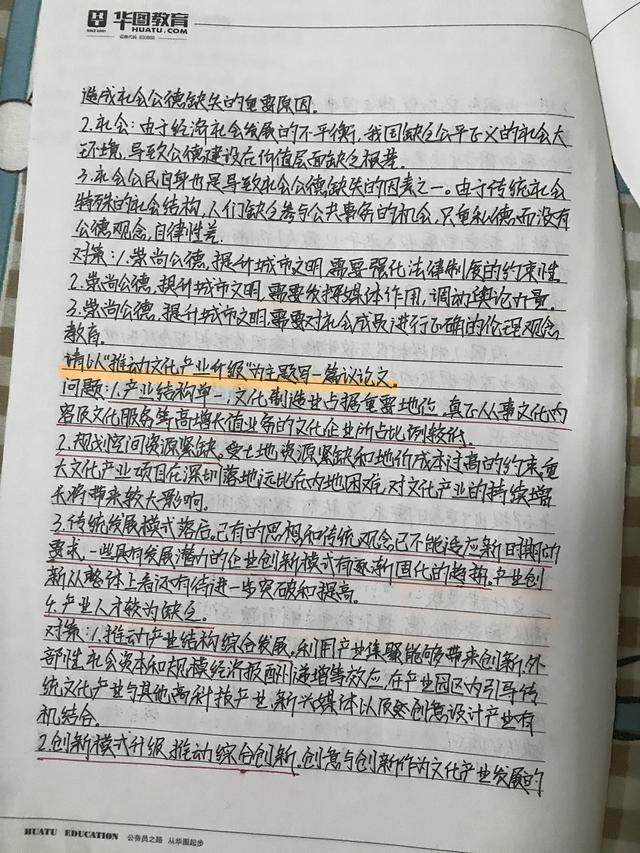 华图教育
HUATU.COM
造成社会公德缺失的重要原因。
2.社会:由于经济社会发展的不平衡,我国缺乏公平正义的社会大
环境,导致公德建设在价值层面缺乏根基。
3.社会公民自身也是导致社会公德缺失的因素之一。由于传统社会
特殊的社会结构,人们缺乏参与公共事务的机会,只重私德而没有
公德观念,自律性差.
对策:1.崇尚公德,提升城市文明,需要强化法律制度的约束性
2.崇尚公德,提升城市文明,需要发挥媒体作用,调动舆论力量.
3.崇尚公德,提升城市文明需要对社会成员进行正确的伦理观念
教育.
请以“推动文化产业升级”为主题写一篇议论文。
问题:1.产业结构单一,文化制造业占据重要地位,真正从事文化内
容及文化服务等高增长值业务的文化企业所占比例较低.
2.规划空间资源紧缺,受土地资源紧缺和地价成本过高的约束,重
大文化产业项目在深圳落地远比在内地困难,对文化产业的持续增
长将带来较大影响.
3.传统发展模式落后,已有的思想和传统观念已不能适应新时期的
要求,一些具有发展潜力的企业创新模式有逐渐固化的趋势,产业创
新从整体上看还有待进一步突破和提高。
4.产业人才较为缺乏.
对策:1.推动产业结构综合发展,利用产业集聚能够带来创新,外
部性,社会资本和规模经济报酬递增等效应,在产业园区内引导传
统文化产业与其他高科技产业,新兴媒体以及创意设计产业有
机结合.
2.创新模式升级,推动综合创新.创意与创新作为文化产业发展的
HUATU EDUCATION 公务员之路 从华图起步